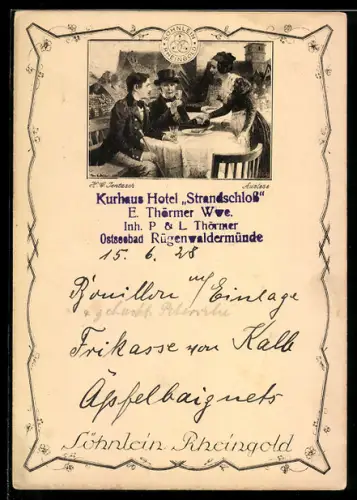 SÖHNLEIN RHEINGOLD
Auslese
Kurhaus Hotel „Strandschloß"
E. Thörmer Wwe.
Inh. P & L Thörmer
Ostseebad Rügenwaldermünde
15. 6. 28
Bouillon m/ Einlage
Frikasse von Kalb
Äpfelbaignets
Söhnlein Rheingold